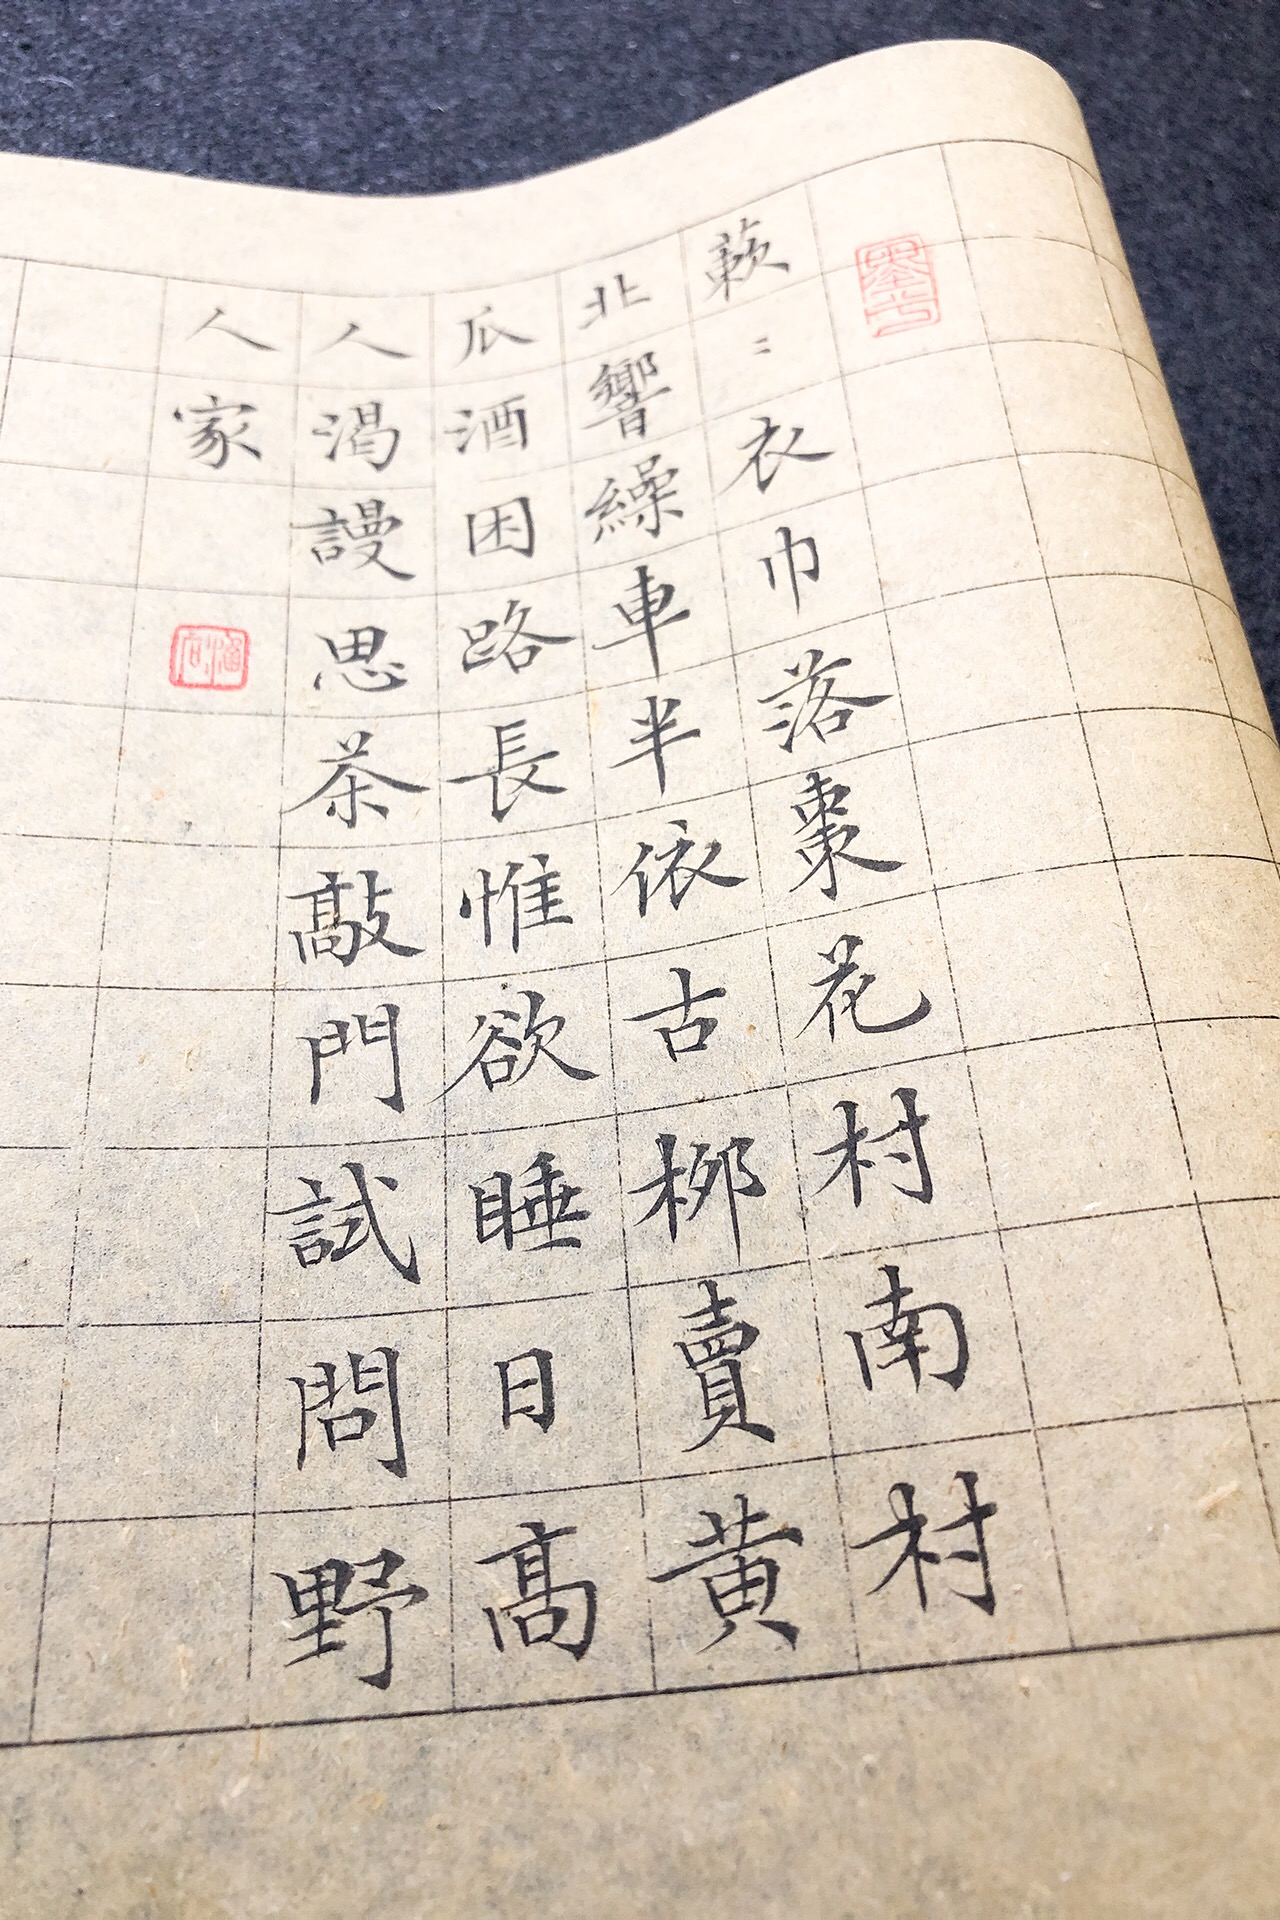 蔌〻衣巾落棗花村南村
北響繰車半依古柳賣黃
瓜酒困路長惟欲睡日髙
人渴謾思茶敲門試問野
人家